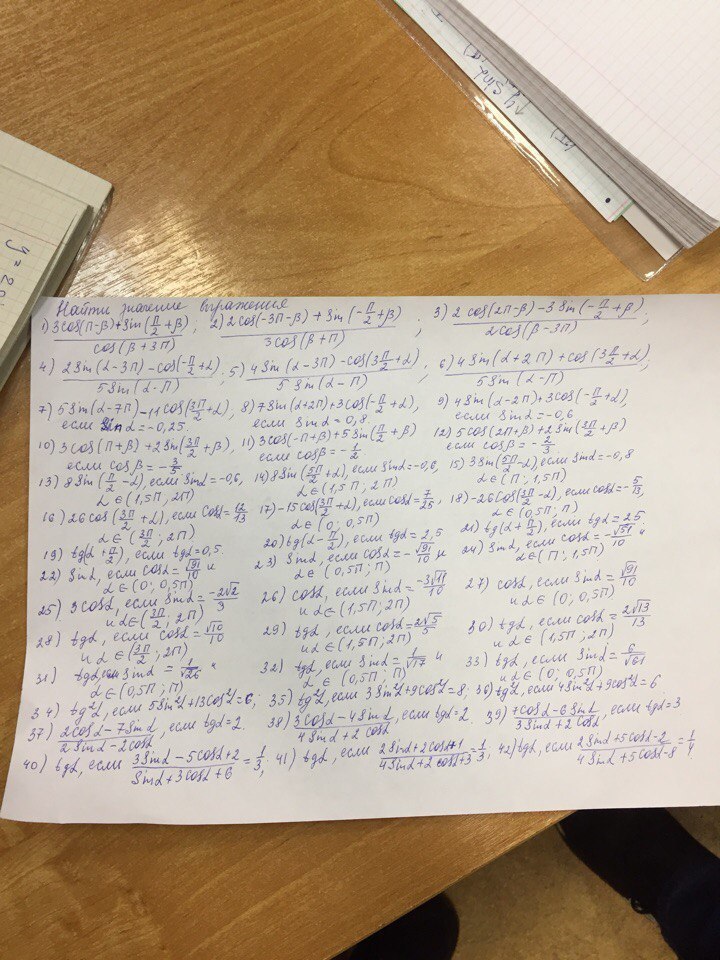 Найти значение выражения
1) 3cos(π-β)+sin(π/2+β) / cos(β+3π) ; 2) 2cos(-3π-β)+sin(-π/2+β) / 3cos(β+π) ; 3) 2cos(2π-β)-3sin(-π/2+β) / 2cos(β-3π) ;
4) 2sin(α-3π)-cos(-π/2+α) / 5sin(α-π) ; 5) 4sin(α-3π)-cos(3π/2+α) / 5sin(α-π) ; 6) 4sin(α+2π)+cos(3π/2+α) / 5sin(α-π) ;
7) 5sin(α-7π)-11cos(3π/2+α), 8) 7sin(α+2π)+3cos(-π/2+α), 9) 4sin(α-2π)+3cos(-π/2+α),
если sinα=-0,25. если sinα=0,8 если sinα=-0,6
10) 3cos(π+β)+2sin(3π/2+β), 11) 3cos(-π+β)+5sin(π/2+β) 12) 5cos(2π+β)+2sin(3π/2+β)
если cosβ=- если cosβ=- если cosβ=-2/3
13) 8sin(π/2-α), если sinα=-0,6, 14) 8sin(5π/2+α), если sinα=-0,6, 15) 3sin(5π/2-α), если sinα=-0,8
α∈(1,5π, 2π) α∈(1,5π; 2π) α∈(π; 1,5π)
16) 26cos(3π/2+α), если cosα=12/13 17) -15cos(3π/2+α), если cosα=7/25 18) -26cos(3π/2-α), если cosα=-5/13,
α∈(3π/2; 2π) α∈(0; 0,5π) α∈(0,5π; π)
19) tg(α+π/2), если tgα=0,5. 20) tg(α-π/2), если tgα=2,5 21) tg(α+π/2), если tgα=2,5
22) sinα, если cosα=√91/10 и 23) sinα, если cosα=-√91/10 и 24) sinα, если cosα=-√51/10 и
α∈(0; 0,5π) α∈(0,5π; π) α∈(π; 1,5π)
25) 3cosα, если sinα=-2√2/3 26) cosα, если sinα=-3√11/10 27) cosα, если sinα=√91/10
и α∈(3π/2; 2π) и α∈(1,5π; 2π) и α∈(0; 0,5π)
28) tgα, если cosα=√10/10 29) tgα, если cosα=2√5/5 30) tgα, если cosα=2√13/13
и α∈(3π/2; 2π) и α∈(1,5π; 2π) и α∈(1,5π; 2π)
31) tgα, если sinα=1/√26 и 32) tgα, если sinα=1/√17 и 33) tgα, если sinα=6/√61
α∈(0,5π; π) α∈(0,5π; π) и α∈(0; 0,5π)
34) tg²α, если 5sin²α+13cos²α=6; 35) tg²α, если 3sin²α+9cos²α=8; 36) tg²α, если 4sin²α+9cos²α=6
37) 2cosα-7sinα / 2sinα-2cosα, если tgα=2. 38) 3cosα-4sinα / 4sinα-2cosα, если tgα=2. 39) cosα-6sinα / 3sinα+2cosα, если tgα=3
40) tgα, если 3sinα-5cosα+2 / sinα+3cosα+6 = 1/3, 41) tgα, если 2sinα+2cosα+1 / 4sinα+2cosα+3 = 1/3. 42) tgα, если 2sinα+5cosα-2 / 4sinα+5cosα-8 = 1/4